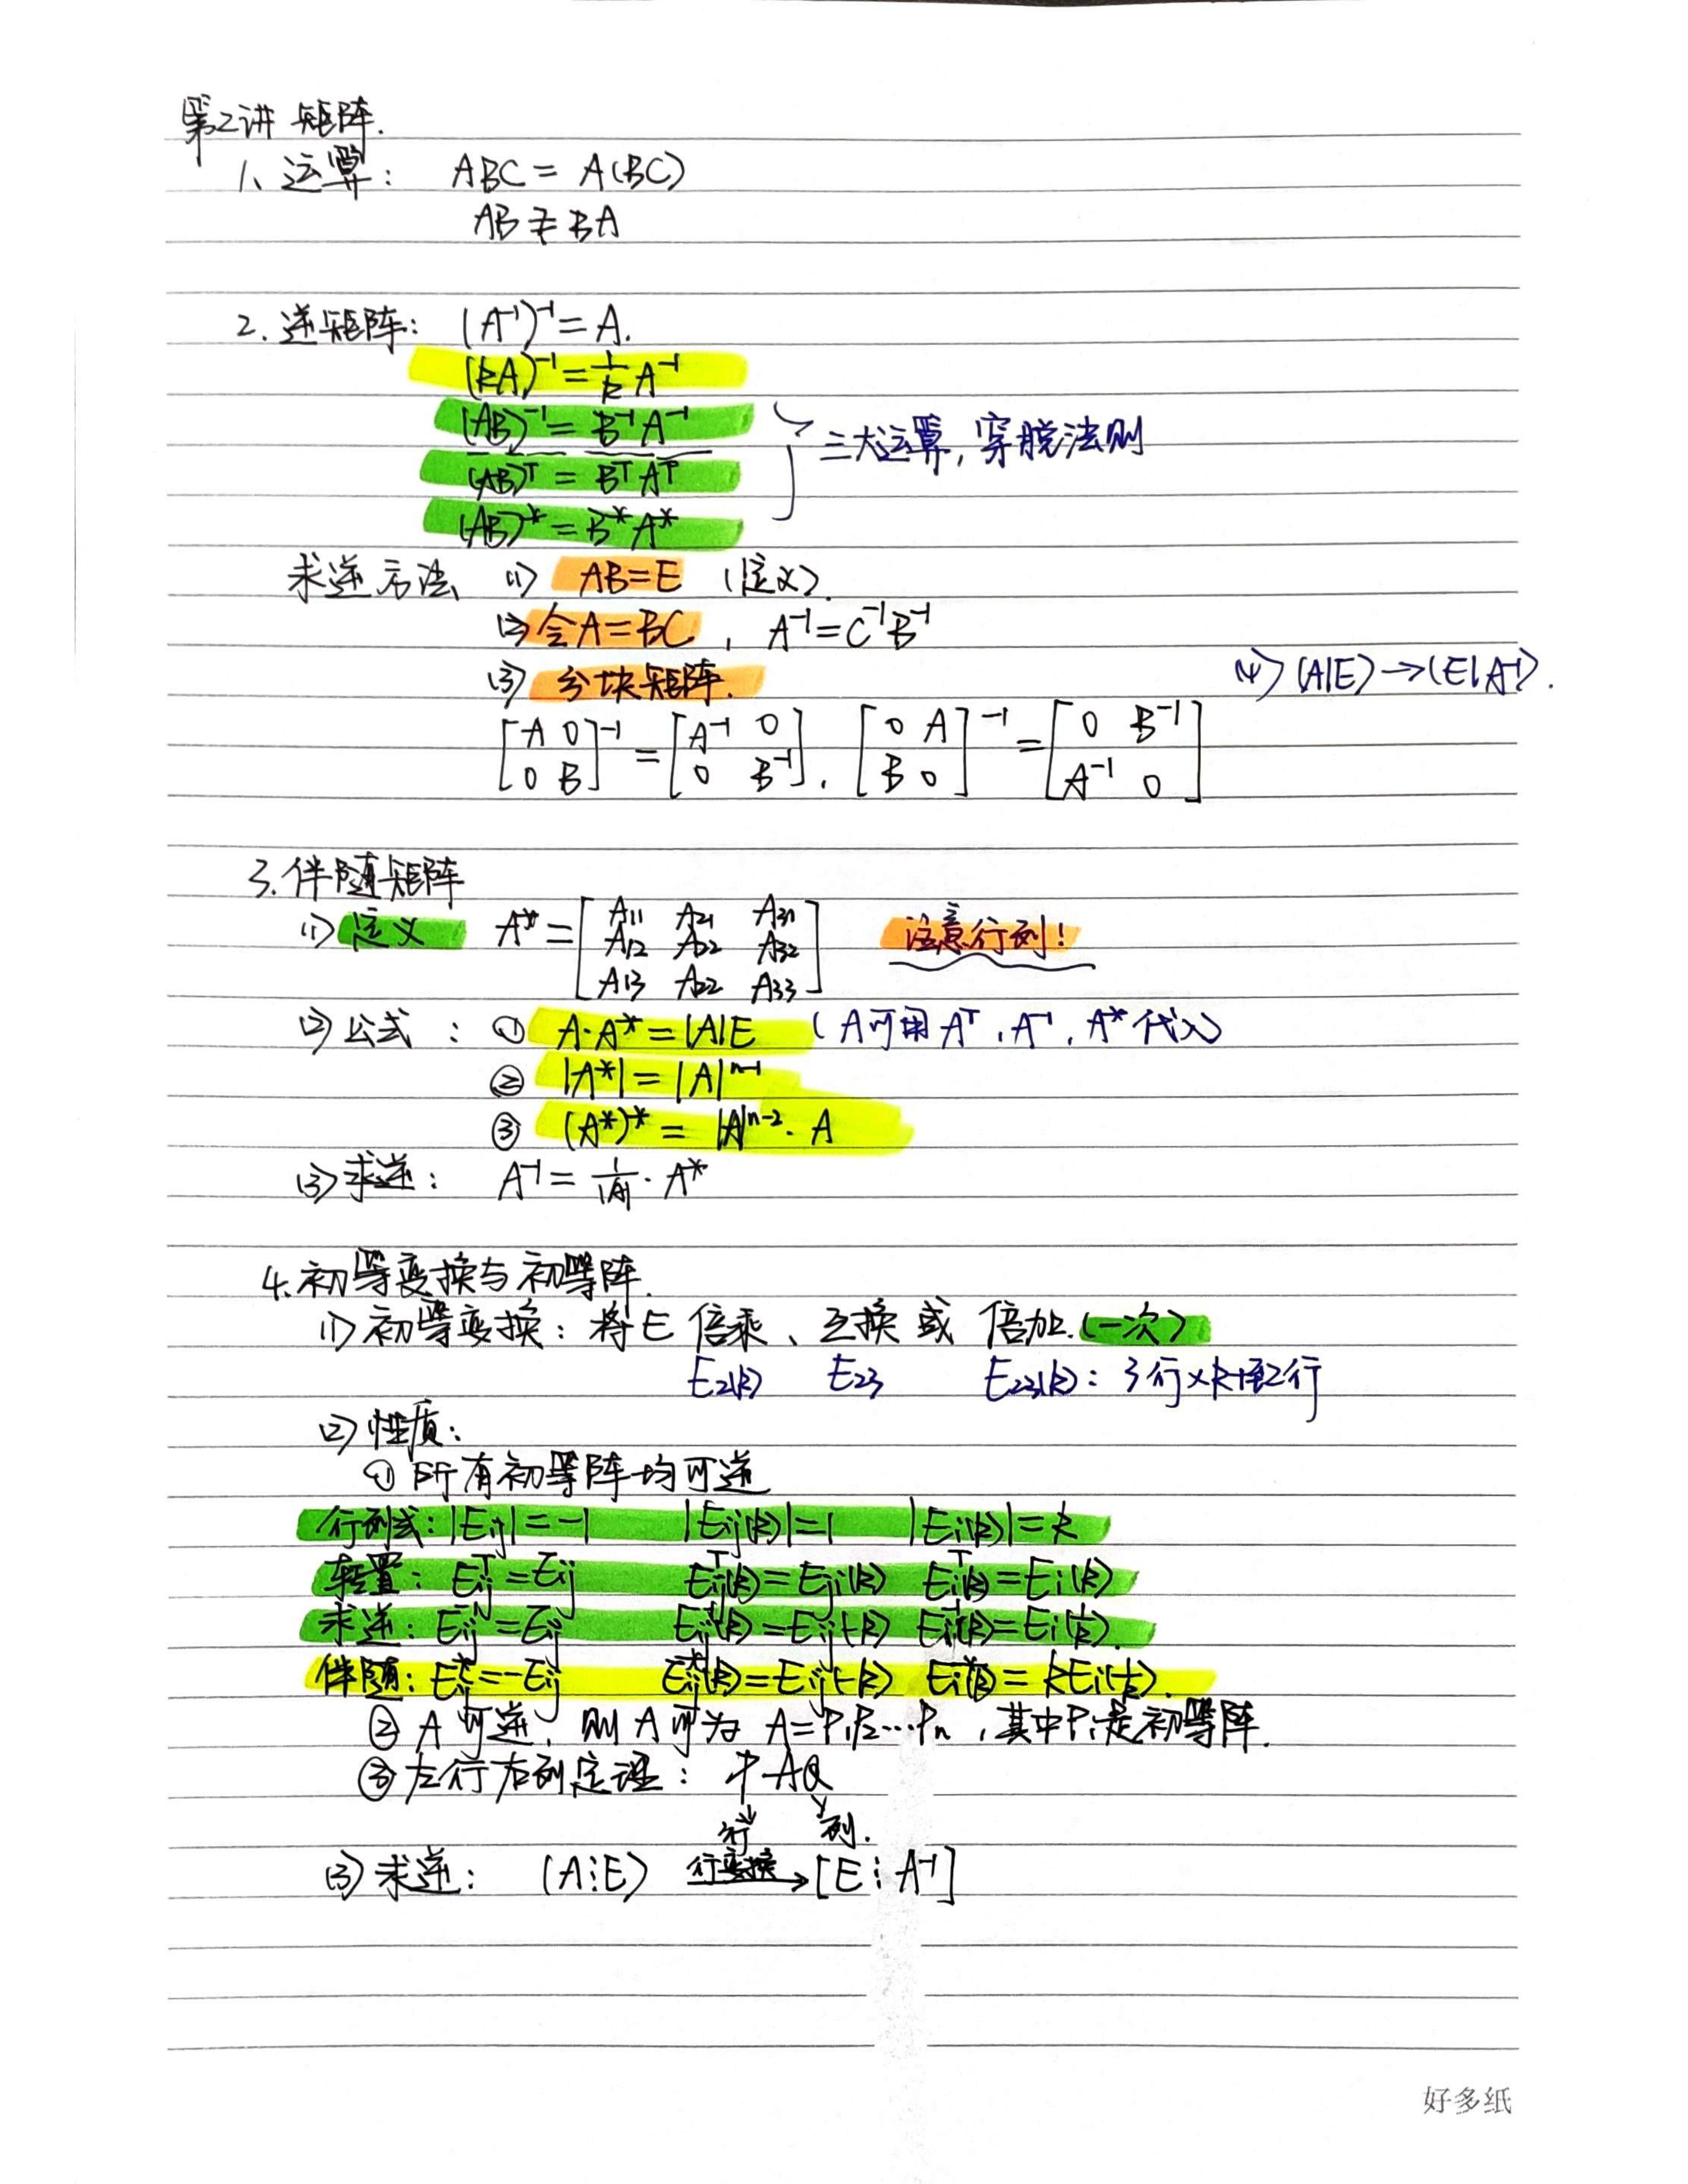 第2讲 矩阵.
1、运算： ABC = A(BC)
AB ≠ BA
2. 逆矩阵： (A⁻¹)⁻¹ = A.
(kA)⁻¹ = 1/k A⁻¹
(AB)⁻¹ = B⁻¹A⁻¹
三大运算, 穿脱法则
(AB)ᵀ = BᵀAᵀ
(AB)* = B*A*
求逆方法 (1) AB=E (定义).
(2) 令A=BC , A⁻¹=C⁻¹B⁻¹
(3) 分块矩阵.
(4) (A|E)→(E|A⁻¹).
[A 0; 0 B]⁻¹ = [A⁻¹ 0; 0 B⁻¹], [0 A; B 0]⁻¹ = [0 B⁻¹; A⁻¹ 0]
3. 伴随矩阵
(1) 定义 A* = [A11 A21 A31; A12 A22 A32; A13 A22 A33] 注意行列!
(2) 公式： ① A·A* = |A|E (A可用Aᵀ, A⁻¹, A*代入)
② |A*| = |A|ⁿ⁻¹
③ (A*)* = |A|ⁿ⁻²·A
(3) 求逆： A⁻¹ = 1/|A| · A*
4. 初等变换与初等阵.
(1) 初等变换：将E 倍乘、互换 或 倍加.(一次)
E2(k) E23 E23(k)：3行×k+到2行
(2) 性质：
① 所有初等阵均可逆
行列式：|Eij|=-1 |Eij(k)|=1 |Ei(k)|=k
转置：Eijᵀ=Eij Eijᵀ(k)=Eji(k) Eiᵀ(k)=Ei(k)
求逆：Eij⁻¹=Eij Eij⁻¹(k)=Eij(-k) Ei⁻¹(k)=Ei(1/k).
伴随：Eij*=-Eij Eij*(k)=Eij(-k) Ei*(k)=kEi(1/k).
② A 可逆, 则 A 可为 A=P1P2…Pn , 其中Pi是初等阵.
③ 左行右列定理： PAQ
行 列.
(3) 求逆： (A⋮E) 行变换→ [E⋮A⁻¹]
好多纸